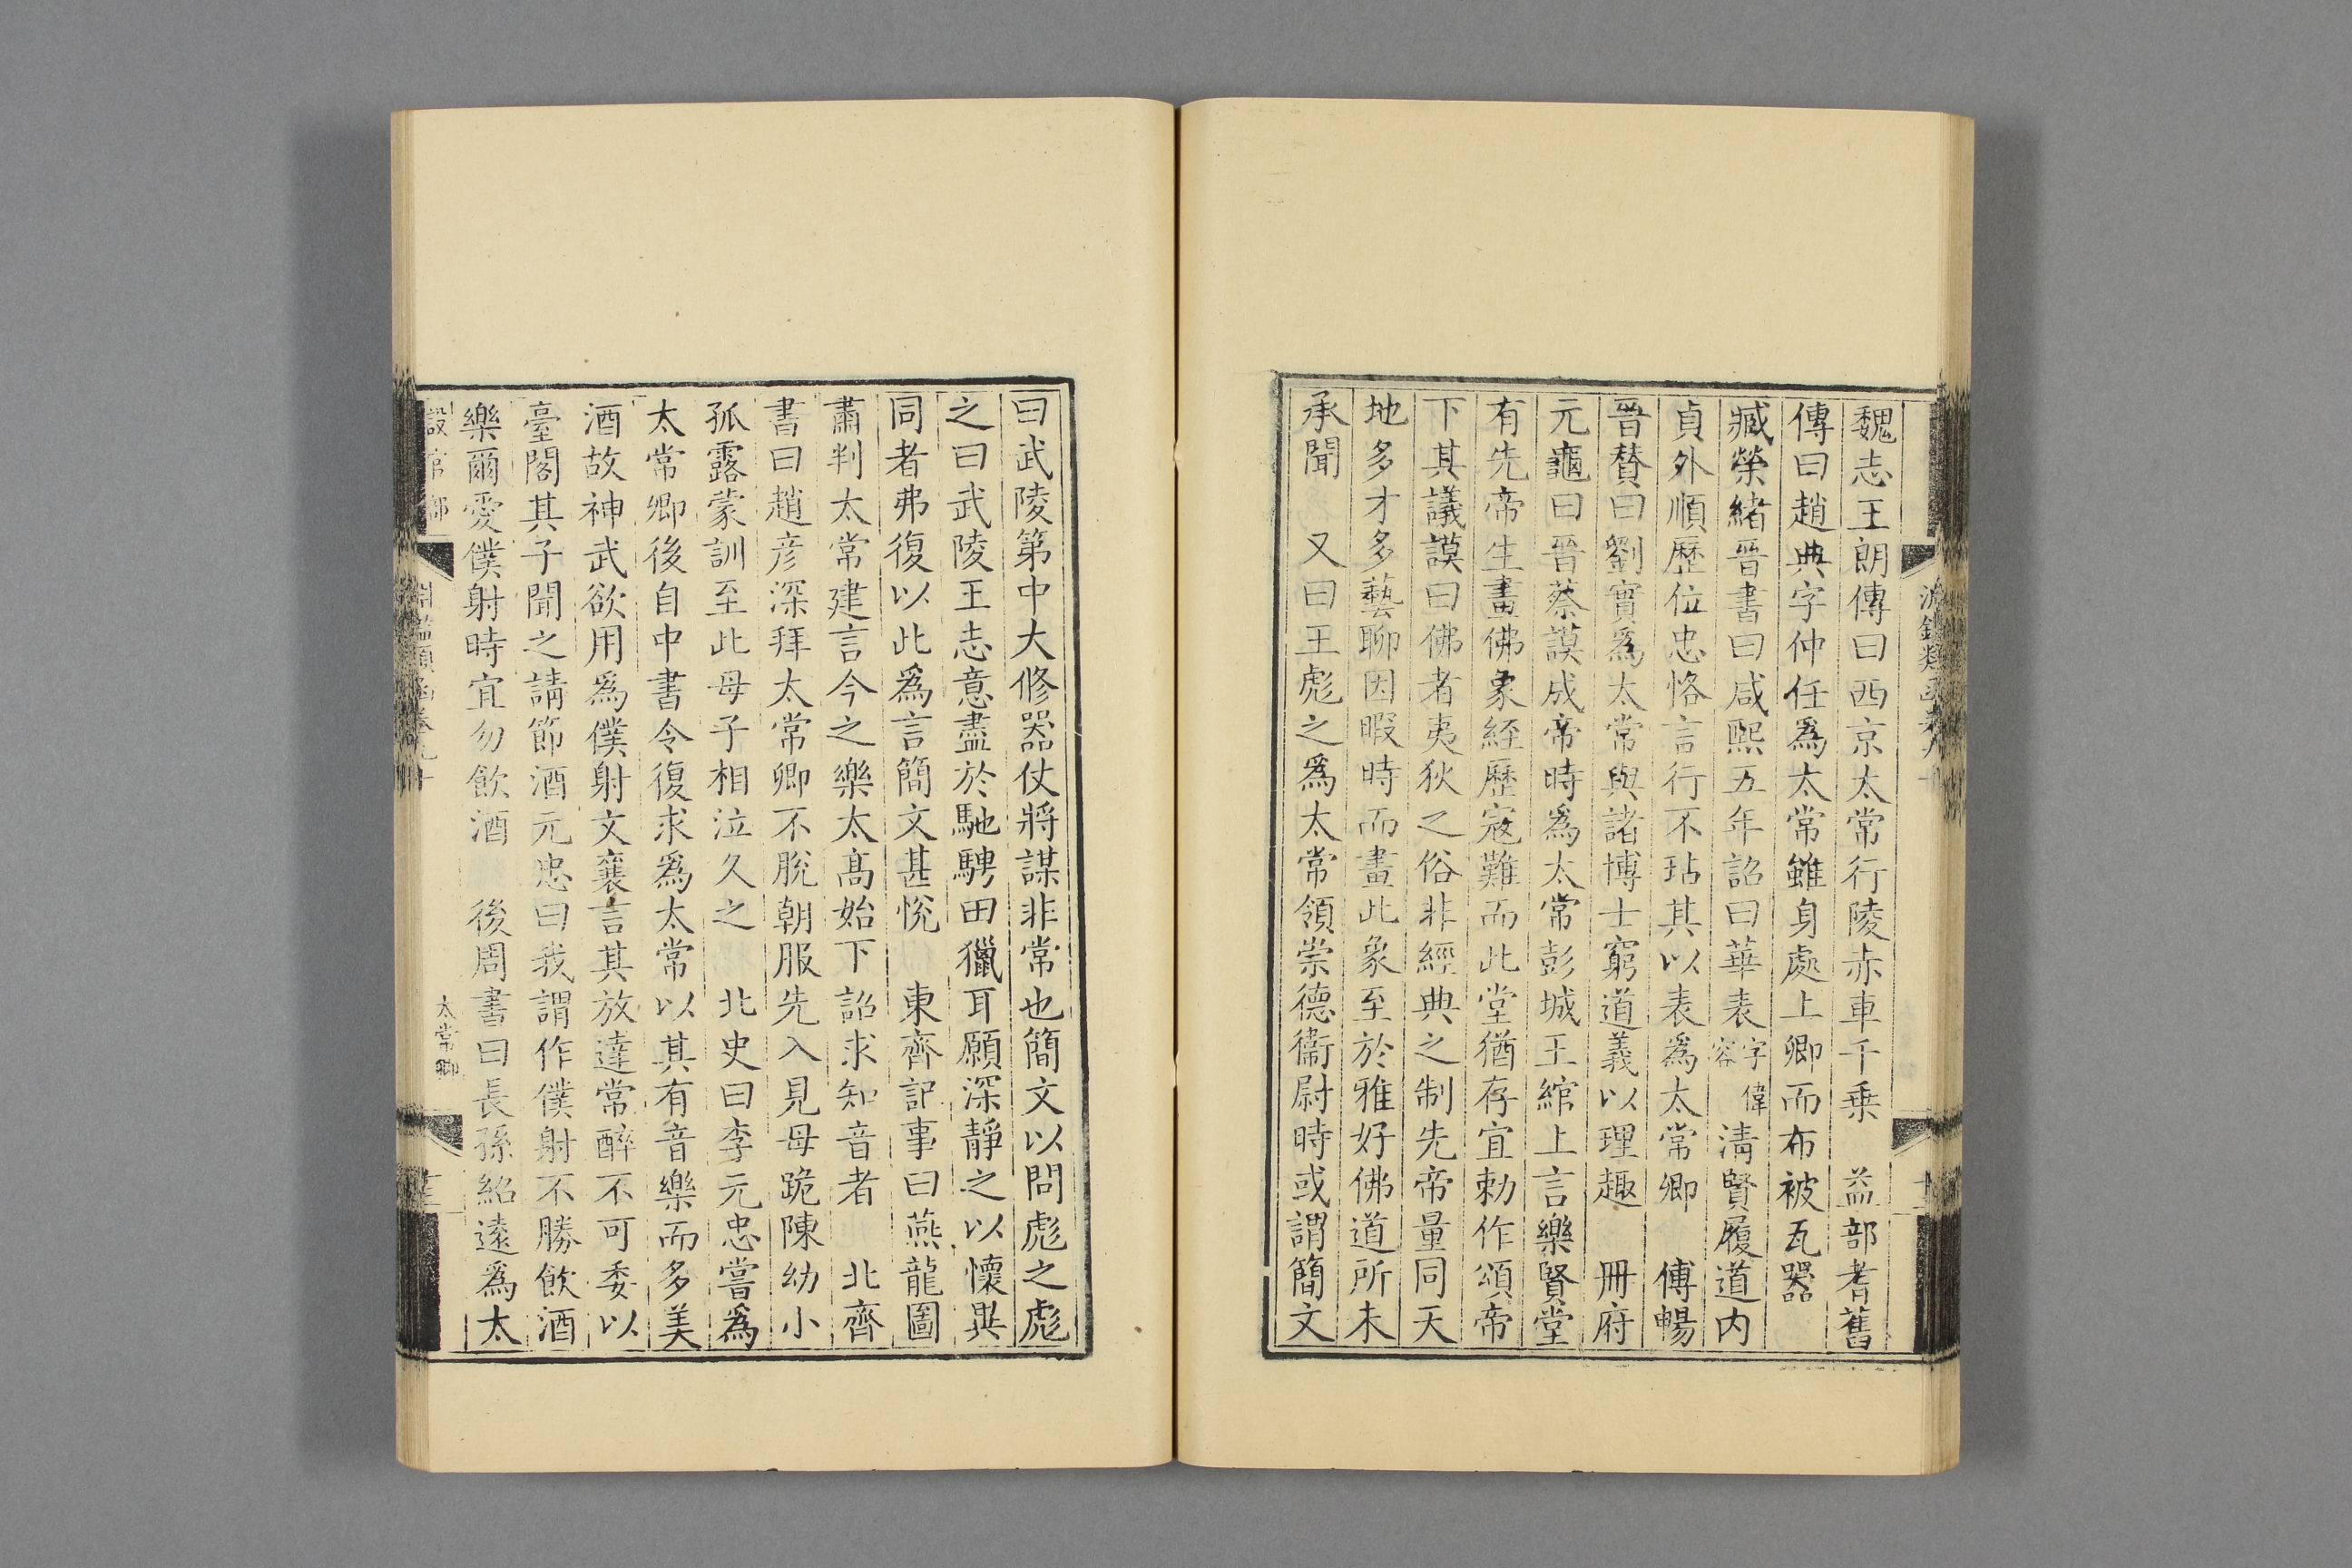 魏志王朗傳曰西京太常行陵赤車千乗　益部耆舊
傳曰趙典字仲任爲太常雖身處上卿而布被瓦器
臧榮緒晉書曰咸熙五年詔曰華表字偉容清賢履道内
貞外順歷位忠恪言行不玷其以表爲太常卿　傅暢
晉賛曰劉實爲太常與諸博士窮道義以理趣　冊府
元龜曰晉蔡謨成帝時爲太常彭城王綰上言樂賢堂
有先帝生畫佛象經歷寇難而此堂猶存宜勅作頌帝
下其議謨曰佛者夷狄之俗非經典之制先帝量同天
地多才多藝聊因暇時而畫此象至於雅好佛道所未
承聞　又曰王彪之爲太常領崇德衞尉時或謂簡文
曰武陵第中大修器仗將謀非常也簡文以問彪之彪
之曰武陵王志意盡於馳騁田獵耳願深靜之以懷異
同者弗復以此爲言簡文甚悅　東齊記事曰燕龍圖
肅判太常建言今之樂太高始下詔求知音者　北齊
書曰趙彦深拜太常卿不脫朝服先入見母跪陳幼小
孤露蒙訓至此母子相泣久之　北史曰李元忠嘗爲
太常卿後自中書令復求爲太常以其有音樂而多美
酒故神武欲用爲僕射文襄言其放達常醉不可委以
臺閣其子聞之請節酒元忠曰我謂作僕射不勝飲酒
樂爾愛僕射時宜勿飲酒　後周書曰長孫紹遠爲太
設官部　淵鑑類函卷九十　太常卿